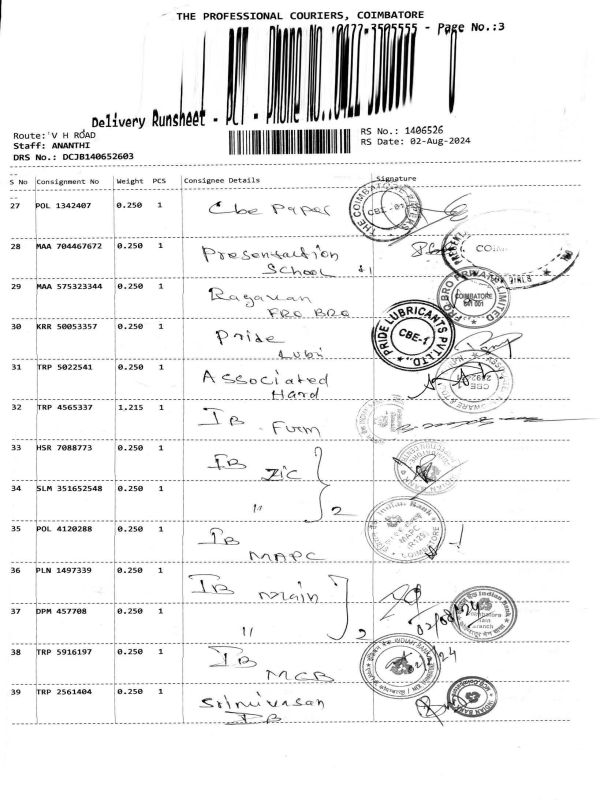 THE PROFESSIONAL COURIERS, COIMBATORE
Delivery Runsheet - PCT - Phone No.:0422-3505555 - Page No.:3
Route: V H ROAD
Staff: ANANTHI
DRS No.: DCJB140652603
RS No.: 1406526
RS Date: 02-Aug-2024
S No Consignment No Weight PCS Consignee Details Signature
27 POL 1342407 0.250 1 Cbe Paper
THE COIMBATORE PAPERS CBE-01
28 MAA 704467672 0.250 1 Presentaction
School
29 MAA 575323344 0.250 1 Ragavan
PRO BRO
PRO BRO PRIVATE LIMITED COIMBATORE 641 001
30 KRR 50053357 0.250 1 Pride
Lubri
PRIDE LUBRICANTS PVT.LTD., CBE-1
31 TRP 5022541 0.250 1 Associated
Hard
32 TRP 4565337 1.215 1 IB
Furm
33 HSR 7088773 0.250 1 IB
ZIC
34 SLM 351652548 0.250 1 " 2
35 POL 4120288 0.250 1 IB
MAPC
Indian Bank MAPC COIMBATORE
36 PLN 1497339 0.250 1 IB Main
37 DPM 457708 0.250 1 " 2
02/08/24
Indian Bank Coimbatore Main Branch
38 TRP 5916197 0.250 1 IB
MCB
39 TRP 2561404 0.250 1 Srinivasan
IB
INDIAN BANK